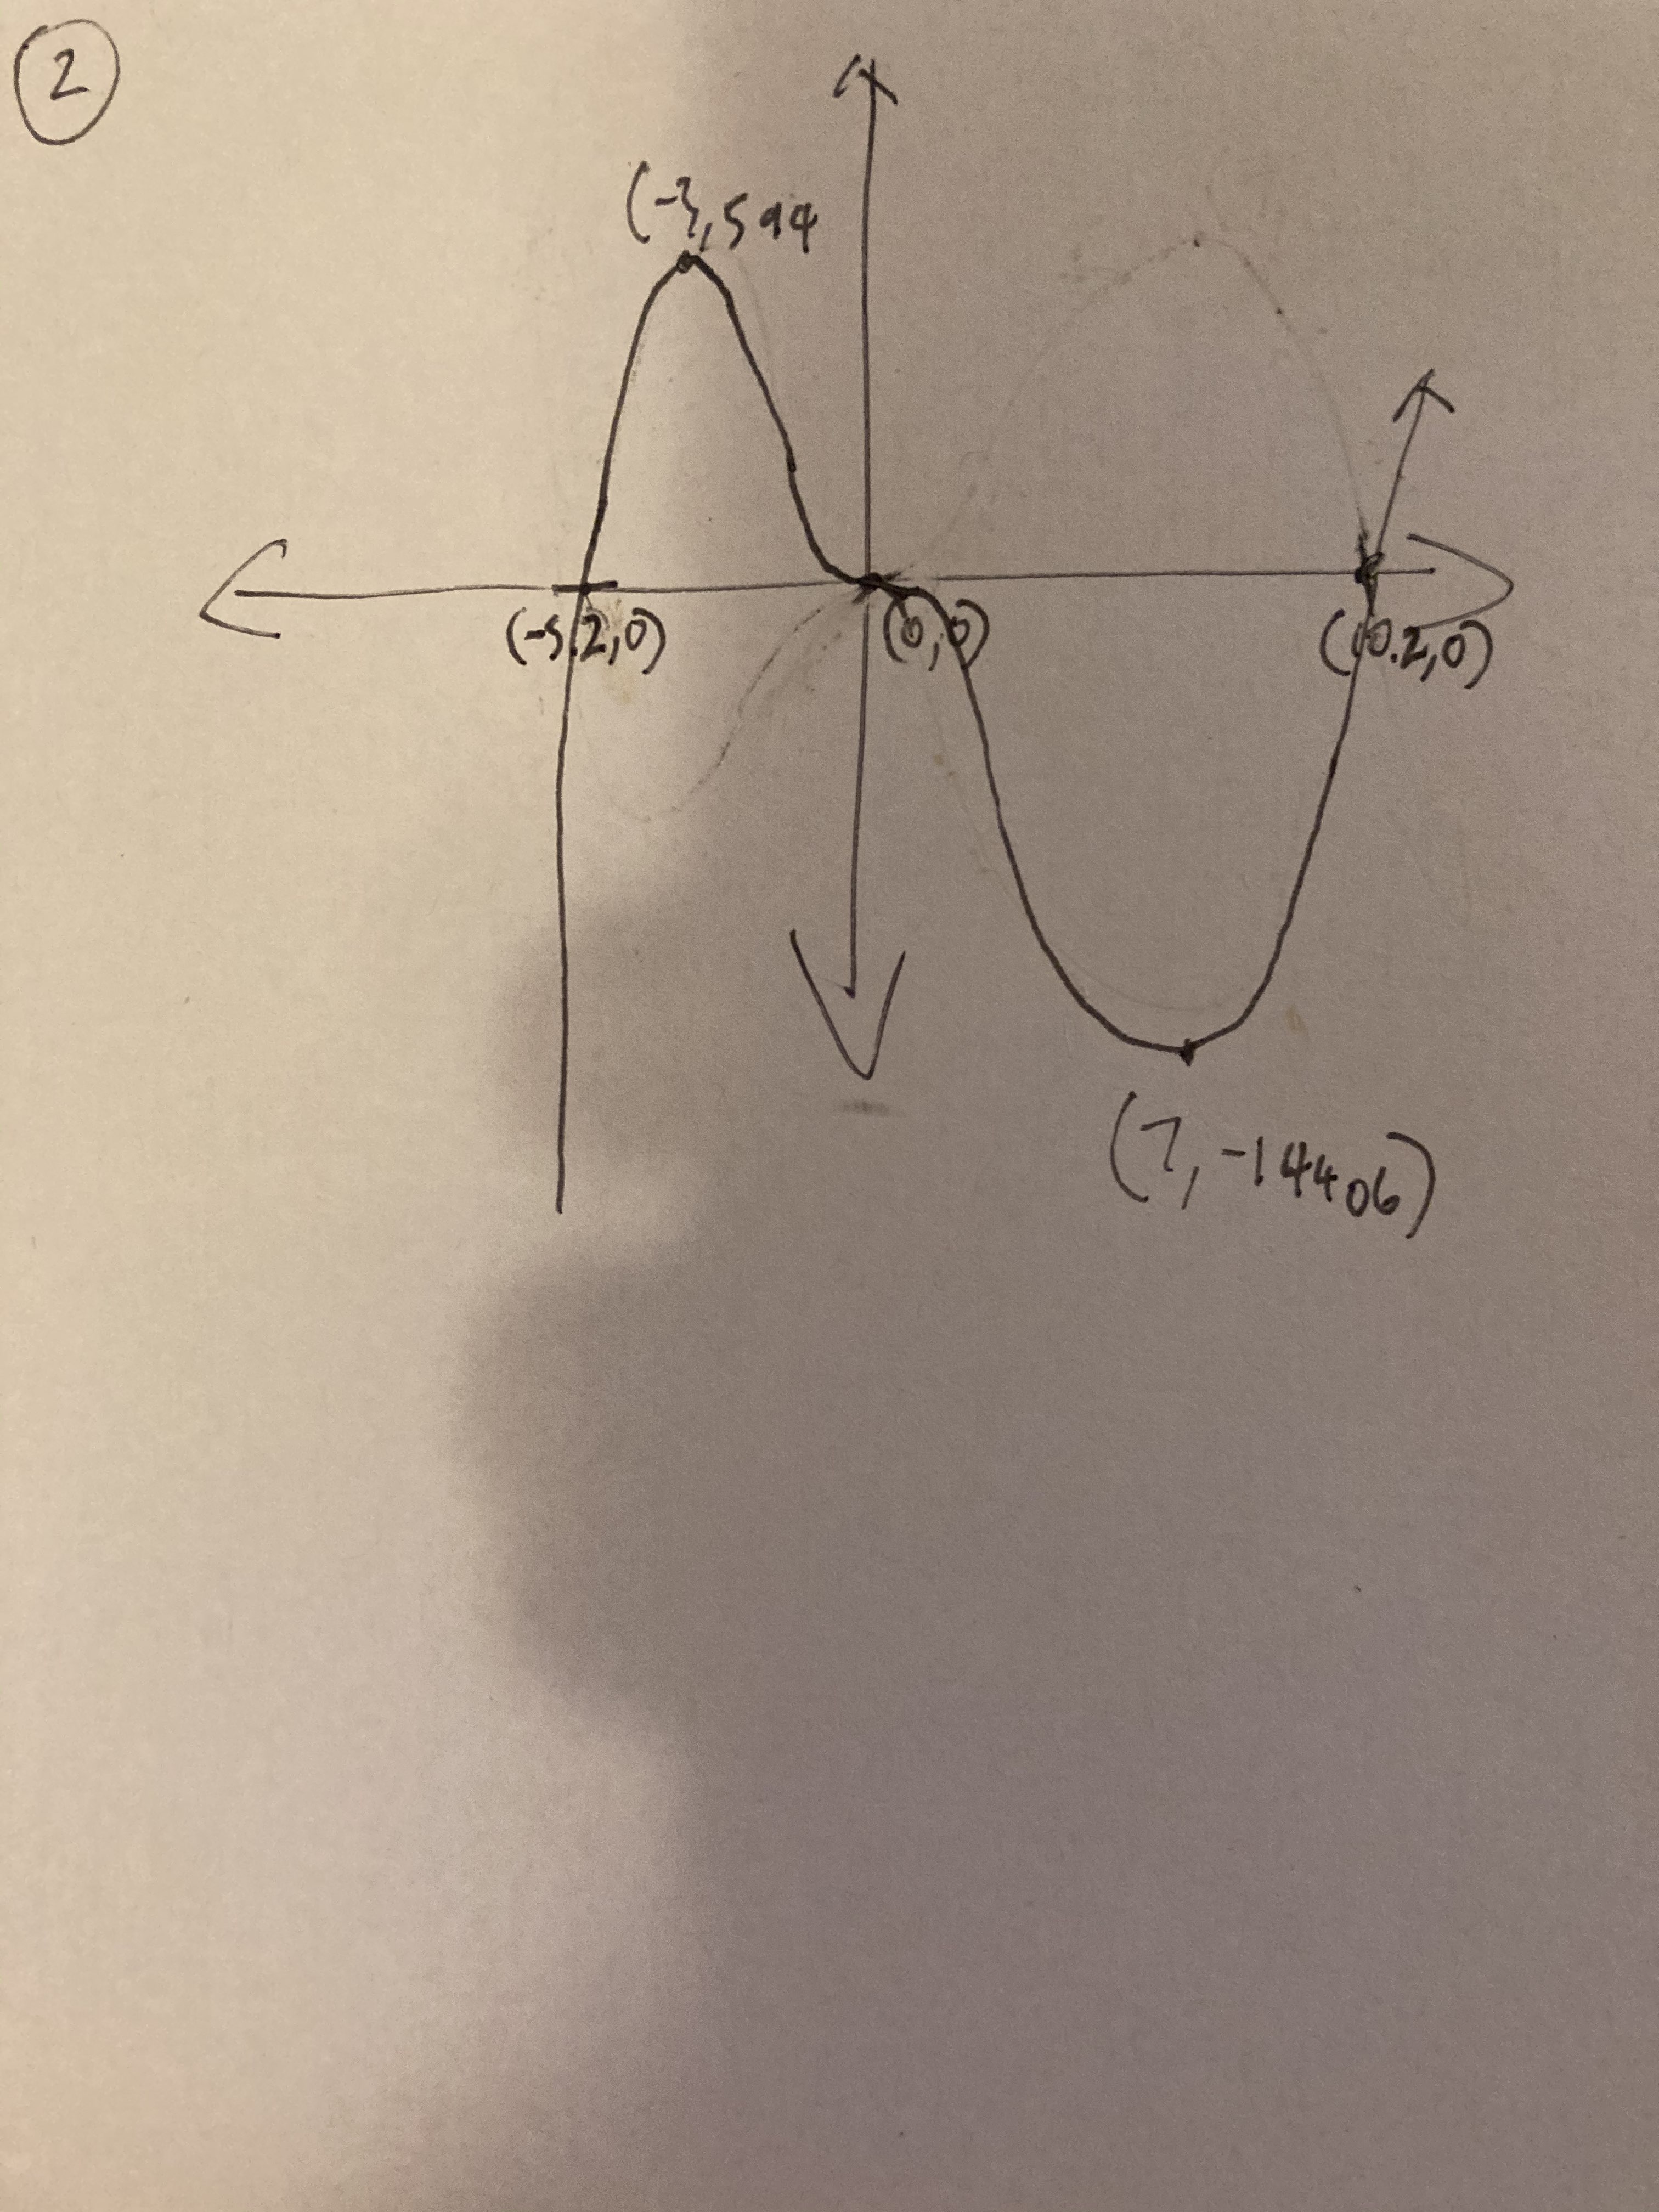 2
(-3,594
(-5.2,0) (0,0) (10.2,0)
(7,-14406)